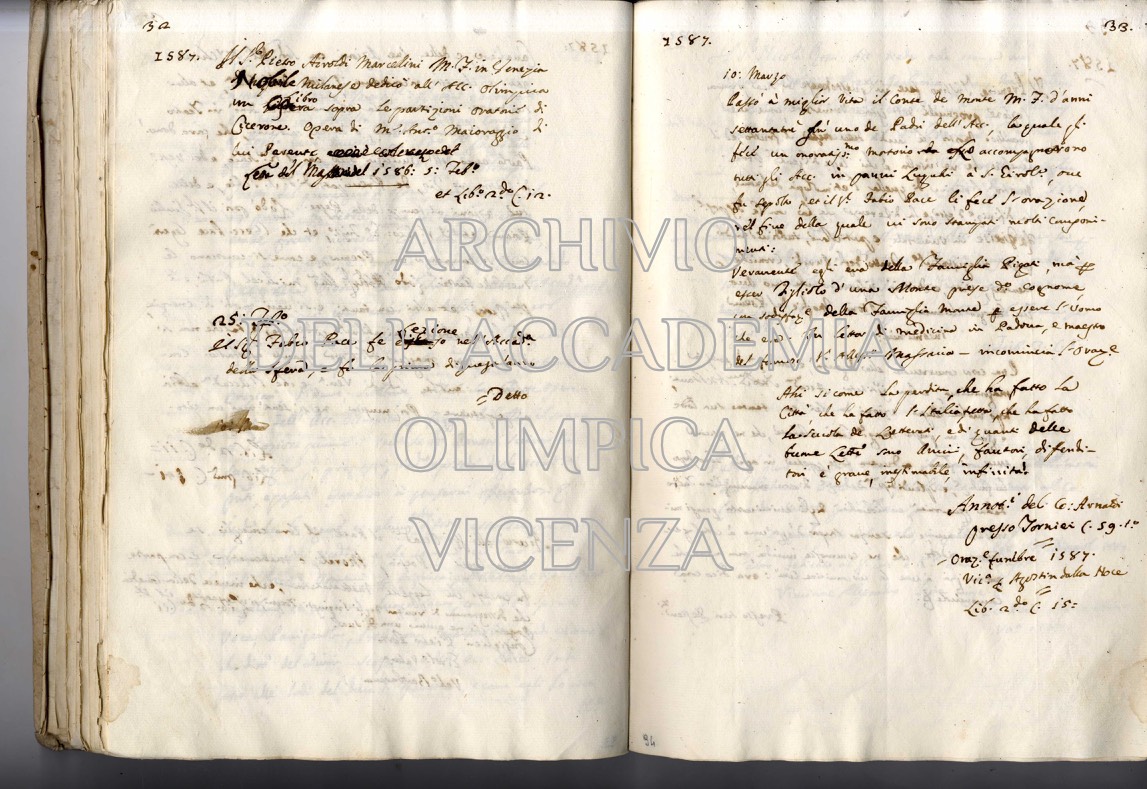 32
1587.
Il S.r Pietro Airoldi Marcelini M. F. in Venezia
Nobile Milanese dedicò all' Acc. Olimpica
un Libro sopra le partizioni oratorie di
Cicerone. Opera di M.c Ant.o Maioraggio, di
lui Parente
del 1586: 5: Feb.o
et Lib.o 2.do C. 12.
25: Feb.o
Il Sig.r Fabio Pace fe Lezione nell'Accad.a
della Sfera, e fu la prima di quest'anno
= Detto
33.
1587.
10: Marzo
Passò à miglior Vita il Conte de Monte M. F. d'anni
settantatre fù uno de Padri dell'Acc., la quale gli
fece un onoratiss.mo mortorio accompagnorono
tutti gli Acc. in panni Lugubri à S. Girol.o, oue
fu sepolto, et il S.r Fabio Pace li fece l'orazione,
nel fine della quale vi sono stampati molti componi-
menti:
Veramente egli era della Famiglia Pigati, ma p
esser Figliolo d'una Monte prese di cognome
della Famiglia Monte p essere l'Uomo
che era fu Lettor di medicina in Padova, e maestro
del famoso Aless.o Massaria — incomincia l'oraz.e
Ahi sicome la perdita, che ha fatto la
Città che ha fatto l'Italia tutta, che ha fatto
la scuola de Letterati e di quanti delle
buone Lett.e sono Amici, fautori, difendi-
tori è graue, inestimabile, infinita.
Annot.i del Co: Arnaldi
presso Tornieri C. 59. t.o
= Oraz.e funebre 1587.
Vic.a p Agostin dalla Noce
Lib.o 2.do C. 15:
94
ARCHIVIO
DELL'ACCADEMIA
OLIMPICA
VICENZA